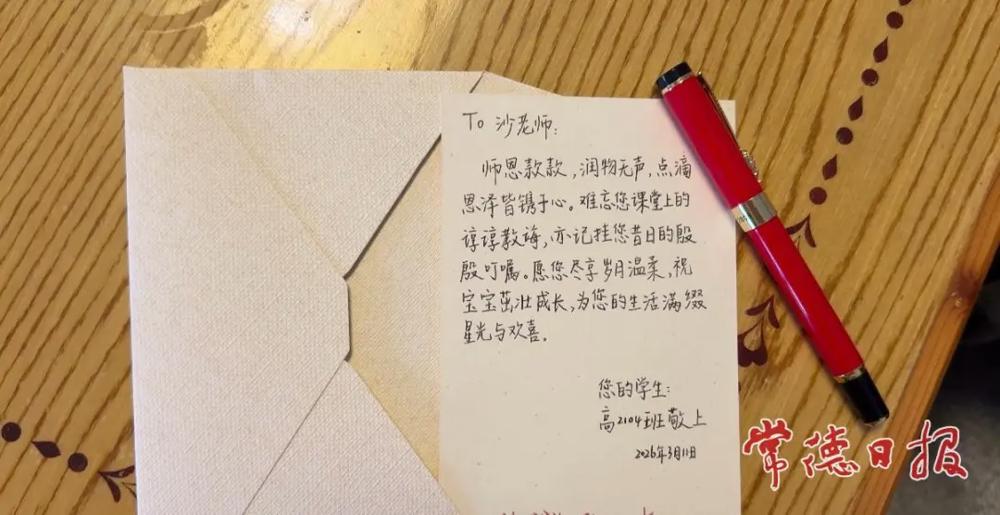 To 沙老师:
师恩款款，润物无声，点滴
恩泽皆镌于心。难忘您课堂上的
谆谆教诲，亦记挂您昔日的殷
殷叮嘱。愿您尽享岁月温柔，祝
宝宝茁壮成长，为您的生活满缀
星光与欢喜。
您的学生:
高2104班敬上
2026年3月11日
常德日报